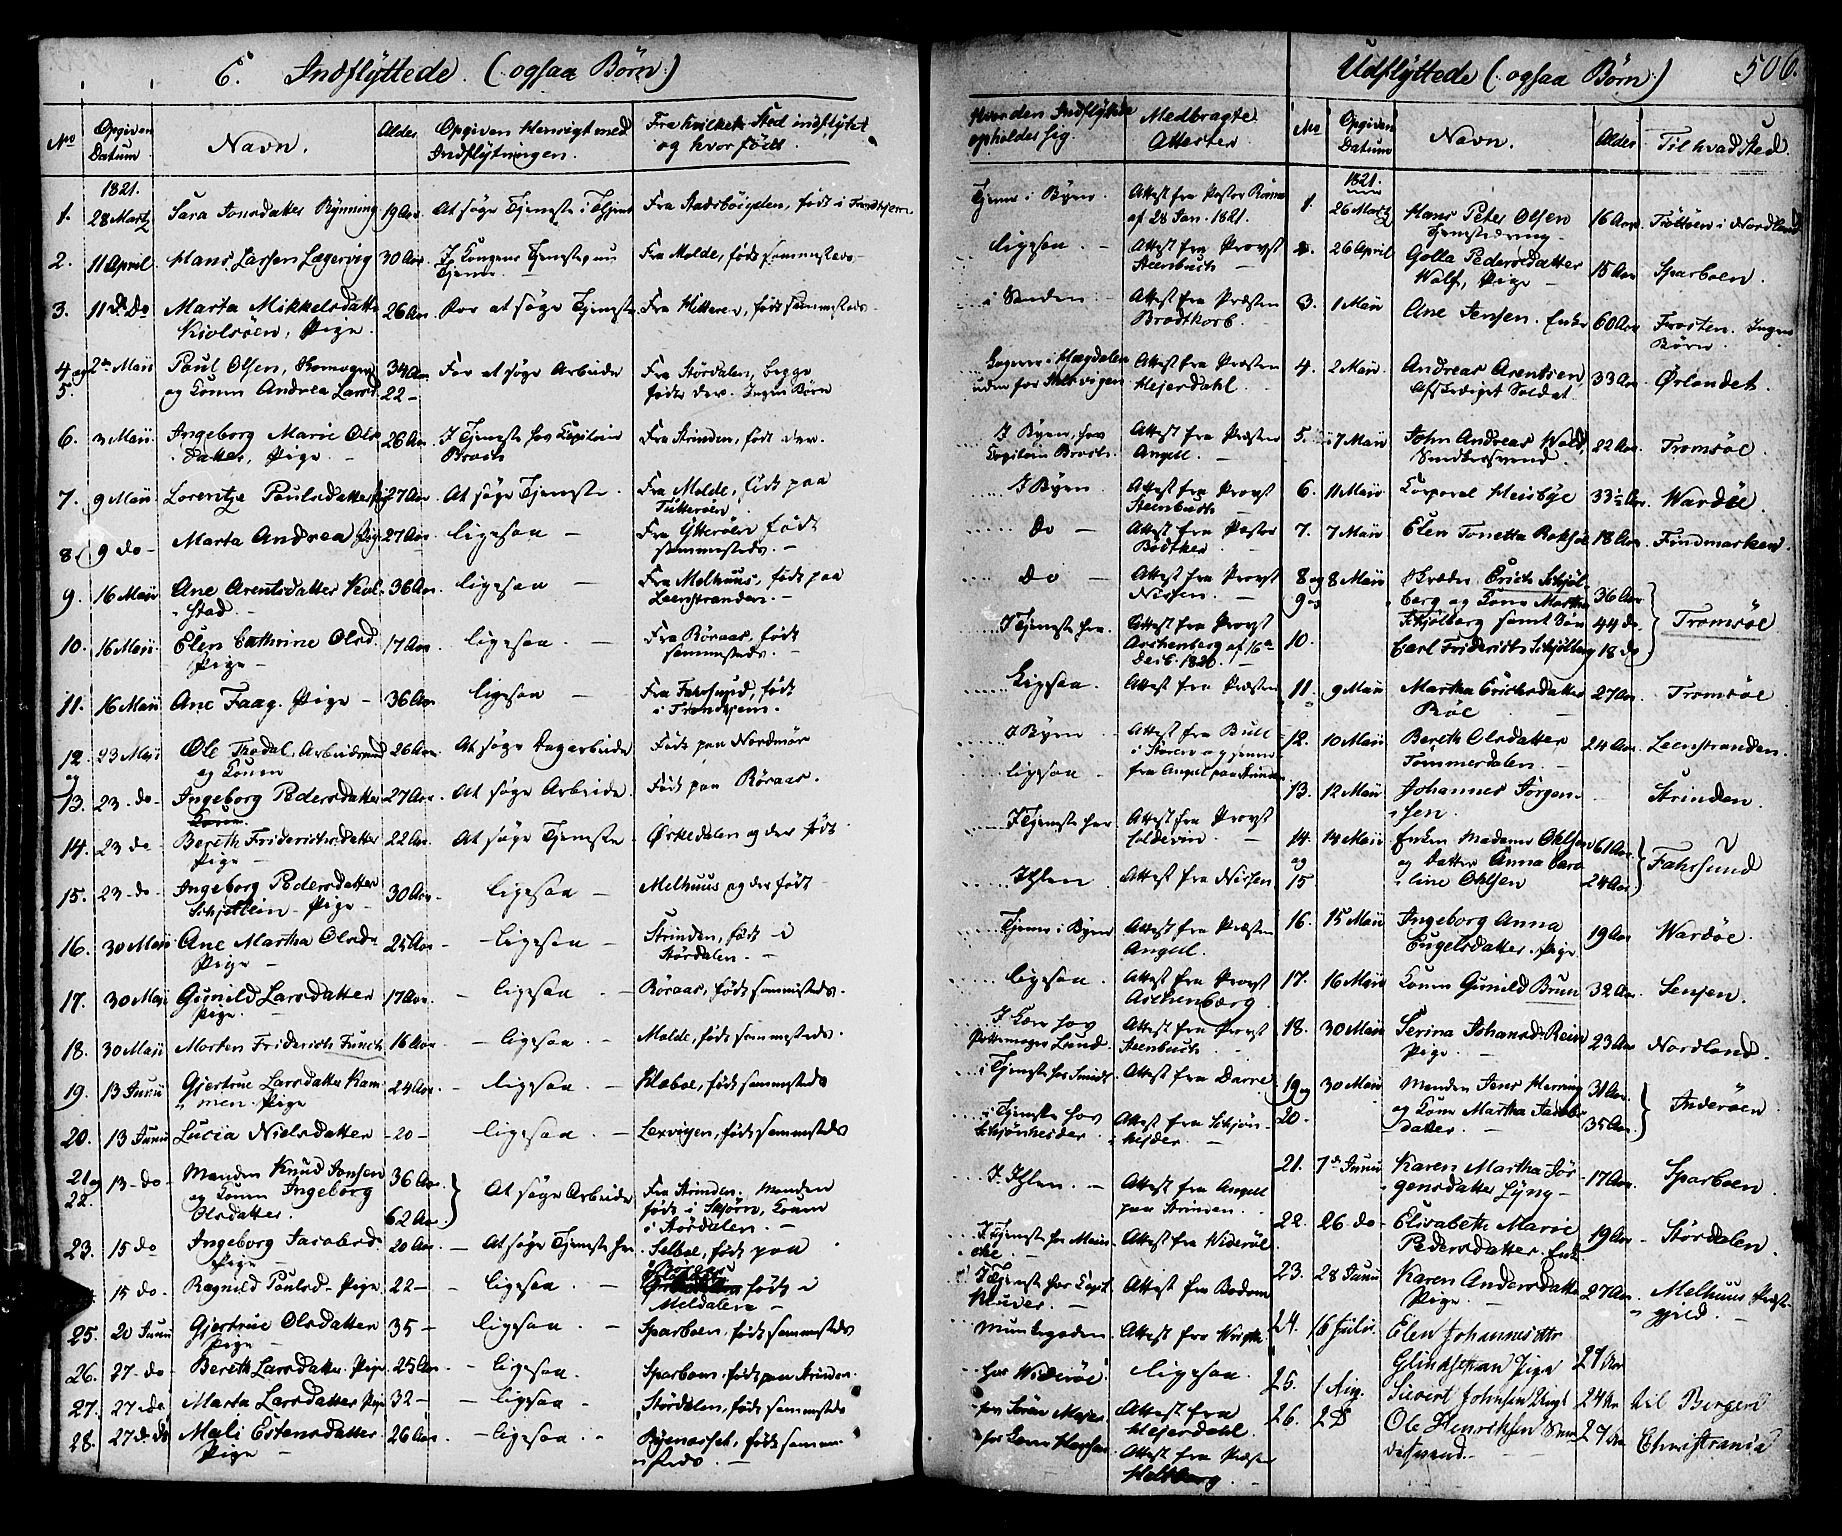 6. Indflyttede (: ogsaa Børn :)
No
Opgiven Datum
Navn.
Alder
Opgiven Hensigt med Indflytningen.
Fra hvilket Sted indflyttet og hvor født.
Hvor den Indflyttede opholder sig.
Medbragte Attester
1821.
1. 28 Martz Sara Jonsdatter Rynning 19 Aar At søge Tjeneste i Fra Stadsbøigden, født i Trondhjem Tjener i Byen. Attest fra Pastor af 28 Jan. 1821.
2. 11 April Hans Larsen Lægervig 30 Aar I Kongens Tjeneste Fra Molde, født sammesteds ligesaa Attest fra Provst Steenbuch
3. 11 d. Do Marta Mikkelsdatter Pige 26 Aar For at søge Tjeneste Fra Hitteren, født sammesteds i Attest fra Præsten Brodtkorb.
4 og 5. 2 Maii Paul Olsen, og Konen Andrea Larsd. 34 Aar 22 For at søge Arbeide Fra Stördalen, begge fødte der. Ingen Børn Attest fra Præsten Hejerdahl.
6. 3 Maii Ingeborg Marie Olsdatter, Pige 26 Aar I Tjeneste hos Capitain Fra Strinden, født der. I Byen, hos Capitain Attest fra Præsten Angell.
7. 9 Maii Lorentze Paulsdatter 27 Aar At søge Tjeneste. Fra Molde, født paa Tutterøen I Byen Attest fra Provst Steenbuch
8 9 do Marta Andrea Pige 27 Aar ligesaa Fra Ytterøen født sammesteds. Do Attest fra Pastor Bødtker
9. 16 Maii Ane Arentsdatter 36 Aar ligesaa Fra Melhuus, født paa Leenstranden. Do Attest fra Provst Nissen.
10. 16 Maii Elen Cathrine Olsd. Pige 17 Aar ligesaa Fra Røraas, født sammesteds. I Tjeneste her Attest fra Provst Aschenberg af 16 Decb. 1820.
11. 16 Maii Ane Faag. Pige 36 Aar ligesaa Fra Fahrsund, født i Trondhjem. Ligesaa. Attest fra Præsten
12. og 23 Maii Ole Trødal, og Konen 26 Aar At søge Dagarbeide Født paa Nordmør I Byen Attest fra Bull
13. 23 do Ingeborg Pedersdatter 27 Aar At søge Arbeide Født paa Røraas. ligesaa fra Angel paa Strinden
14. 23 do Bereth Friderichsdatter Pige 22 Aar At søge Tjeneste Ørkedalen og der født I Tjeneste her Attest fra Provst
15. 23 do Ingeborg Pedersdatter Schjetlein Pige 30 Aar ligesaa Melhuus og der født I Ihlen Attest fra Nissen
16. 30 Maii Ane Martha Olsd. Pige 25 Aar ligesaa Strinden, født i Stördalen. Tjener i Byen Attest fra Præsten Angell.
17. 30 Maii Gunild Larsdatter Pige. 17 Aar ligesaa Røraas, født sammesteds. ligesaa Attest fra Provst Aschenberg
18. 30 Maii Morten Friderich Funch 16 Aar ligesaa Molde, født sammesteds. I Lære hos Pottemager Lund. Attest fra Provst Steenbuch
19. 13 Junii Gjertrue Larsdatter Rammen. Pige 24 Aar ligesaa. Klæboe, født sammesteds i Tjeneste hos Smidt Attest fra Darre
20. 13 Junii Lucia Nielsdatter 20 ligesaa. Lexvigen, født sammesteds i Tjeneste hos Schjønheider Attest fra Schjønheyder
21 og 22. 13 do Manden Knud Jonsen og Konen Ingeborg Olsdatter. 36 Aar 62 Aar At søge Arbeide Fra Strinden, Manden født i Skjørn, Konen i Stördalen. I Ihlen. Attest fra Angell paa Strinden.
23. 15 do Ingeborg Jacobsd. Pige 20 Aar At søge Tjeneste her Selboe, født paa Røraas I Tjeneste hos Attest fra Widerøe
15 do Ragnild Paulsd. Pige 22 ligesaa. født i Meldalen I Tjeneste hos Capt. Kluver. Attest fra Bodom
25. 20 Junii Gjertrue Olsdatter Pige 35 ligesaa. Sparboen, født sammesteds Munkegaden Attest fra
26. 27 do Bereth Larsdatter. Pige 25 Aar ligesaa. Sparboen født paa Strinden. hos Widerøe ligesaa
27. 27 do Marta Larsdatter Pige 32 ligesaa Stördalen, født sammesteds Attest fra Hejerdahl.
28. 27 d. do Mali Estensdatter Pige 26 Aar ligesaa Byenæsset, født sammesteds. Attest fra Præsten Heltberg
Udflyttede (: ogsaa Børn :) 506.
No
Opgiven Datum
Navn.
Alder
Til hvad Sted.
1821.
1. 26 Martz Hans Peter Olsen Tjenestedreng 16 Aar i Nordland
2. 26 April Golla Pedersdatter Wolf, Pige 15 Aar Sparboen.
3. 1 Maii Ane Jensen. Enke 60 Aar Frosten. Ingen Børn.
4. 2 Maii Andreas Arentsen Afskediget Soldat 33 Aar Ørlandet.
5. 7 Maii John Andreas Wold, Snedkersvend. 22 Aar Tromsøe.
6. 11 Maii Corporal Heisbye 33½ Aar Wardøe
7. 7 Maii Elen Tonetta 18 Aar Findmarken.
8 og 9 og 10. 8 Maii Skræder Erich Schjølberg og Kone Martha Schjølberg samt Søn Carl Friderich Schjølberg 36 Aar 44 do 18 do Tromsøe
11 9 Maii Martha Erichsdatter Røe 27 Aar Tromsøe
12. 10 Maii Bereth Olsdatter Tømmerdalen. 24 Aar Leenstranden.
13. 12 Maii Johannes Jørgensen. Strinden.
14. og 15 14 Maii Enken Madame Ohlsen og Datter Anna Caroline Ohlsen 61 Aar 24 Aar Fahrsund
16. 15 Maii Ingeborg Anna Engelsdatter. Pige 19 Aar Wardøe.
17. 16 Maii Konen Gunild Bruun 32 Aar Senjen.
18. 30 Maii Serina Johansd. Rein Pige. 23 Aar Nordland.
19 og 20. 30 Maii Manden Jens Herring og Kone Martha Jacobsdatter. 31 Aar 35 Aar Inderøen
21. 7 Junii Karen Martha Jørgensdatter Lyng 17 Aar Sparboen
22. 26 do Elisabeth Marie Pedersdatter. Enke 19 Aar Stördalen.
23. 28 Junii Karen Andersdatter Pige 27 Aar Melhuus Præstegjeld.
24. 16 Julii. Elen Johannesdtr Pige 27 Aar
25. 1 Aug. Sivert Johnsen 24 Aar til Bergen
26. 2 D Ole Henriksen 27 Aar Christiania